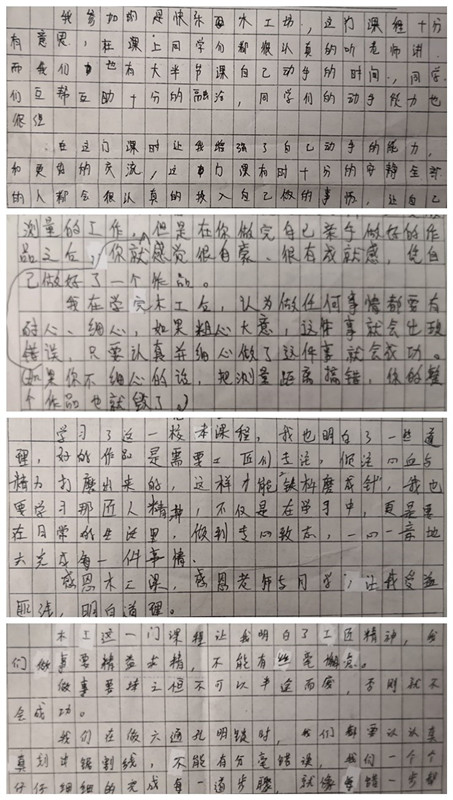 我参加的是快乐西木工坊，这门课程十分
有意思，在课上同学们都很认真的听老师讲
而我们也有大半节课自己动手的时间，同学
们互帮互助十分的融洽，同学们的动手能力也
很强
在这门课时让我增强了自己动手的能力，
和更多的交流，这门课有时十分的安静全部
的人都会很认真的投入自己做的事情，让自己
测量的工作，但是在你做完自己亲手做好的作
品之后，你就感觉很自豪、很有成就感，凭自
己做好了一个作品。
我在学完木工后，认为做任何事情都要有
耐心、细心，如果粗心大意，这件事就会出现
错误，只要认真并细心做了这件事就会成功。
如果你不细心的话，把测量距离搞错，你的整
个作品也就毁了
学习了这一校本课程，我也明白了一些道
理，好的作品是需要工匠们专注，倾注心血与
精力打磨出来的，这样才能"铁杵磨成针"，我也
要学习那匠人精神，不仅是在学习中，更是要
在日常的生活里，做到专心致志，一心一意地
去完成每一件事情。
感恩木工课，感恩老师与同学，让我受益
匪浅，明白道理。
木工这一门课程让我明白了工匠精神，我
们做事要精益求精，不能有丝毫懈怠。
做事要持之恒不可以半途而废，否则就不
会成功。
我们在做六通孔明锁时，我们都要认认真
真刻出锯割线，不能有分毫错误，我们一个个
仔仔细细的完成每一道步骤，就像每错一步都